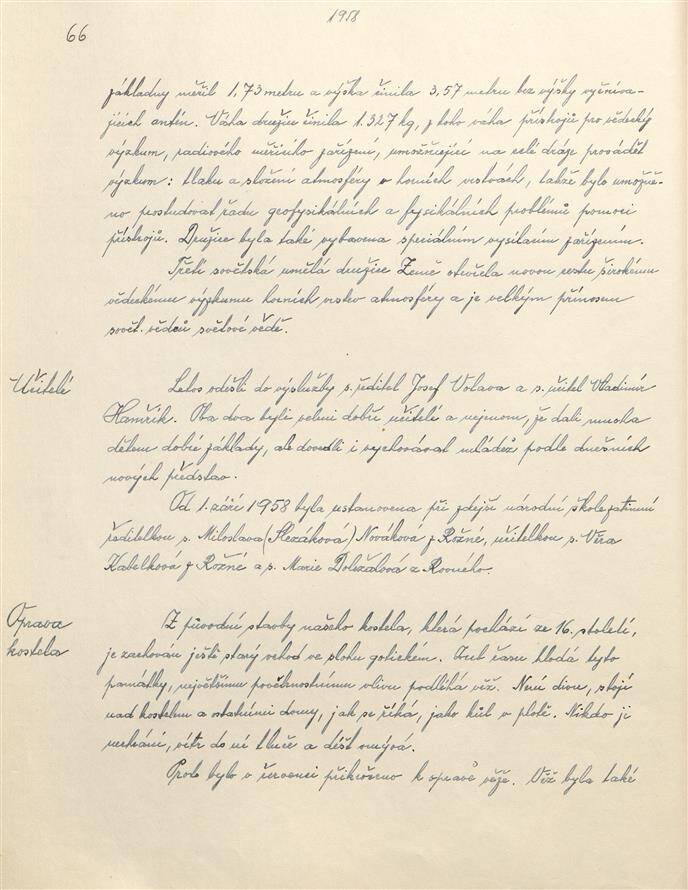 1958
66
základny měřil 1,73 metru a výška činila 3,57 metru bez výšky vyčníva-
jících antén. Váha družice činila 1.327 kg, z toho váha přístrojů pro vědecký
výzkum, radiového měřícího zařízení, umožňující na celé dráze provádět
výzkum: tlaku a složení atmosféry v horních vrstvách, takže bylo umožně-
no prostudovat řadu geofysikálních a fysikálních problémů pomocí
přístrojů. Družice byla také vybavena speciálním vysílacím zařízením.
Třetí sovětská umělá družice Země otevřela novou cestu širokému
vědeckému výzkumu horních vrstev atmosféry a je velkým přínosem
sovět. vědců světové vědě.
Učitelé
Letos odešli do výslužby s. ředitel Josef Volava a s. učitel Vladimír
Hamřík. Oba dva byli velmi dobří učitelé a nejenom, že dali mnoha
dětem dobré základy, ale dovedli i vychovávat mládež podle dnešních
nových představ.
Od 1. září 1958 byla ustanovena při zdejší národní škole zatímní
ředitelkou s. Miloslava (Slezáková) Nováková z Rožné, učitelkou s. Věra
Kabelková z Rožné a s. Marie Doležalová z Rovného.
Oprava
kostela
Z původní stavby našeho kostela, která pochází ze 16. století,
je zachován ještě starý vchod ve slohu gotickém. Zub času hlodá tyto
památky, největšímu povětrnostnímu vlivu podléhá věž. Není divu, stojí
nad kostelem a ostatními domy, jak se říká, jako kůl v plotě. Nikdo ji
nechrání, vítr do ní tluče a déšť omývá.
Proto bylo v červenci přikročeno k opravě věže. Věž byla také